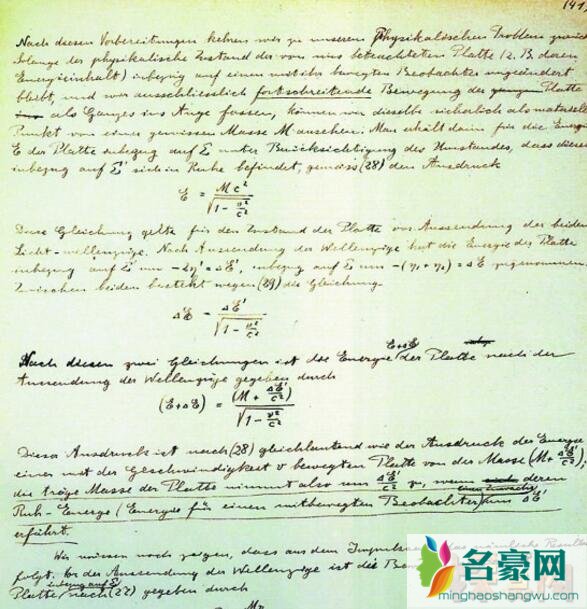 (41)
Nach diesen Vorbereitungen kehren wir zu unserem physikalischen Problem zurück
Solange der physikalische Zustand der von uns betrachteten Platte (z. B. deren
Energieinhalt) inbezug auf einen mit ihr bewegten Beobachter ungeändert
bleibt, und wir ausschliesslich fortschreitende Bewegung der Platte
als Ganzes ins Auge fassen, können wir dieselbe sicherlich als materiellen
Punkt von einer gewissen Masse M ansehen. Man erhält dann für die Energie
E der Platte inbezug auf Σ unter Berücksichtigung des Umstandes, dass dieselbe
inbezug auf Σ' sich in Ruhe befindet, gemäss (28) den Ausdruck
E = Mc² / √(1 - v²/c²)
Diese Gleichung gelte für den Zustand der Platte vor Aussendung der beiden
Licht-wellenzüge. Nach Aussendung der Wellenzüge hat die Energie der Platte
inbezug auf Σ' um -2η' = ΔE', inbezug auf Σ um -(η₁ + η₂) = ΔE zugenommen.
Zwischen beiden besteht wegen (29) die Gleichung
ΔE = ΔE' / √(1 - v²/c²)
Nach diesen zwei Gleichungen ist die Energie E+ΔE der Platte nach der
Aussendung der Wellenzüge gegeben durch
(E+ΔE) = (M + ΔE'/c²) / √(1 - v²/c²)
Dieser Ausdruck ist nach (28) gleichlautend wie der Ausdruck der Energie
einer mit der Geschwindigkeit v bewegten Platte von der Masse (M + ΔE'/c²);
die träge Masse der Platte nimmt also um ΔE'/c² zu, wenn deren
Ruh-Energie (Energie für einen mitbewegten Beobachter) einen Zuwachs um ΔE'
erfährt.
Wir müssen noch zeigen, dass aus dem Impulssatz das nämliche Resultat
folgt. Vor der Aussendung der Wellenzüge ist die
Platte inbezug auf Σ nach (27) gegeben durch
名豪网
minghaoshangwu.com